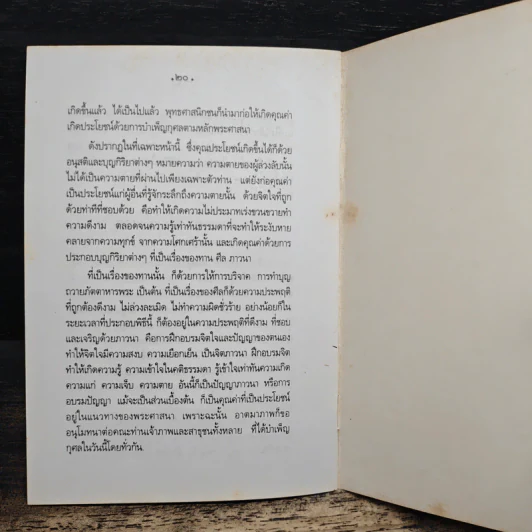 •๒๐•
เกิดขึ้นแล้ว ได้เป็นไปแล้ว พุทธศาสนิกชนก็นำมาก่อให้เกิดคุณค่า
เกิดประโยชน์ด้วยการบำเพ็ญกุศลตามหลักพระศาสนา
ดังปรากฏในที่เฉพาะหน้านี้ ซึ่งคุณประโยชน์เกิดขึ้นได้ก็ด้วย
อนุสติและบุญกิริยาต่างๆ หมายความว่า ความตายของผู้ล่วงลับนั้น
ไม่ได้เป็นความตายที่ผ่านไปเพียงเฉพาะตัวท่าน แต่ยังก่อคุณค่า
เป็นประโยชน์แก่ผู้อื่นที่รู้จักระลึกถึงความตายนั้น ด้วยจิตใจที่ถูก
ด้วยท่าทีที่ชอบด้วย คือทำให้เกิดความไม่ประมาทเร่งขวนขวายทำ
ความดีงาม ตลอดจนความรู้เท่าทันธรรมดาที่จะทำให้ระงับหาย
คลายจากความทุกข์ จากความโศกเศร้านั้น และเกิดคุณค่าด้วยการ
ประกอบบุญกิริยาต่างๆ ที่เป็นเรื่องของทาน ศีล ภาวนา
ที่เป็นเรื่องของทานนั้น ก็ด้วยการให้การบริจาค การทำบุญ
ถวายภัตตาหารพระ เป็นต้น ที่เป็นเรื่องของศีลก็ด้วยความประพฤติ
ที่ถูกต้องดีงาม ไม่ล่วงละเมิด ไม่ทำความผิดชั่วร้าย อย่างน้อยก็ใน
ระยะเวลาที่ประกอบพิธีนี้ ก็ต้องอยู่ในความประพฤติที่ดีงาม ที่ชอบ
และเจริญด้วยภาวนา คือการฝึกอบรมจิตใจและปัญญาของตนเอง
ทำให้จิตใจมีความสงบ ความเยือกเย็น เป็นจิตภาวนา ฝึกอบรมจิต
ทำให้เกิดความรู้ ความเข้าใจในคติธรรมดา รู้เข้าใจเท่าทันความเกิด
ความแก่ ความเจ็บ ความตาย อันนี้ก็เป็นปัญญาภาวนา หรือการ
อบรมปัญญา แม้จะเป็นส่วนเบื้องต้น ก็เป็นคุณค่าที่เป็นประโยชน์
อยู่ในแนวทางของพระศาสนา เพราะฉะนั้น อาตมาภาพก็ขอ
อนุโมทนาต่อคณะท่านเจ้าภาพและสาธุชนทั้งหลาย ที่ได้บำเพ็ญ
กุศลในวันนี้โดยทั่วกัน.